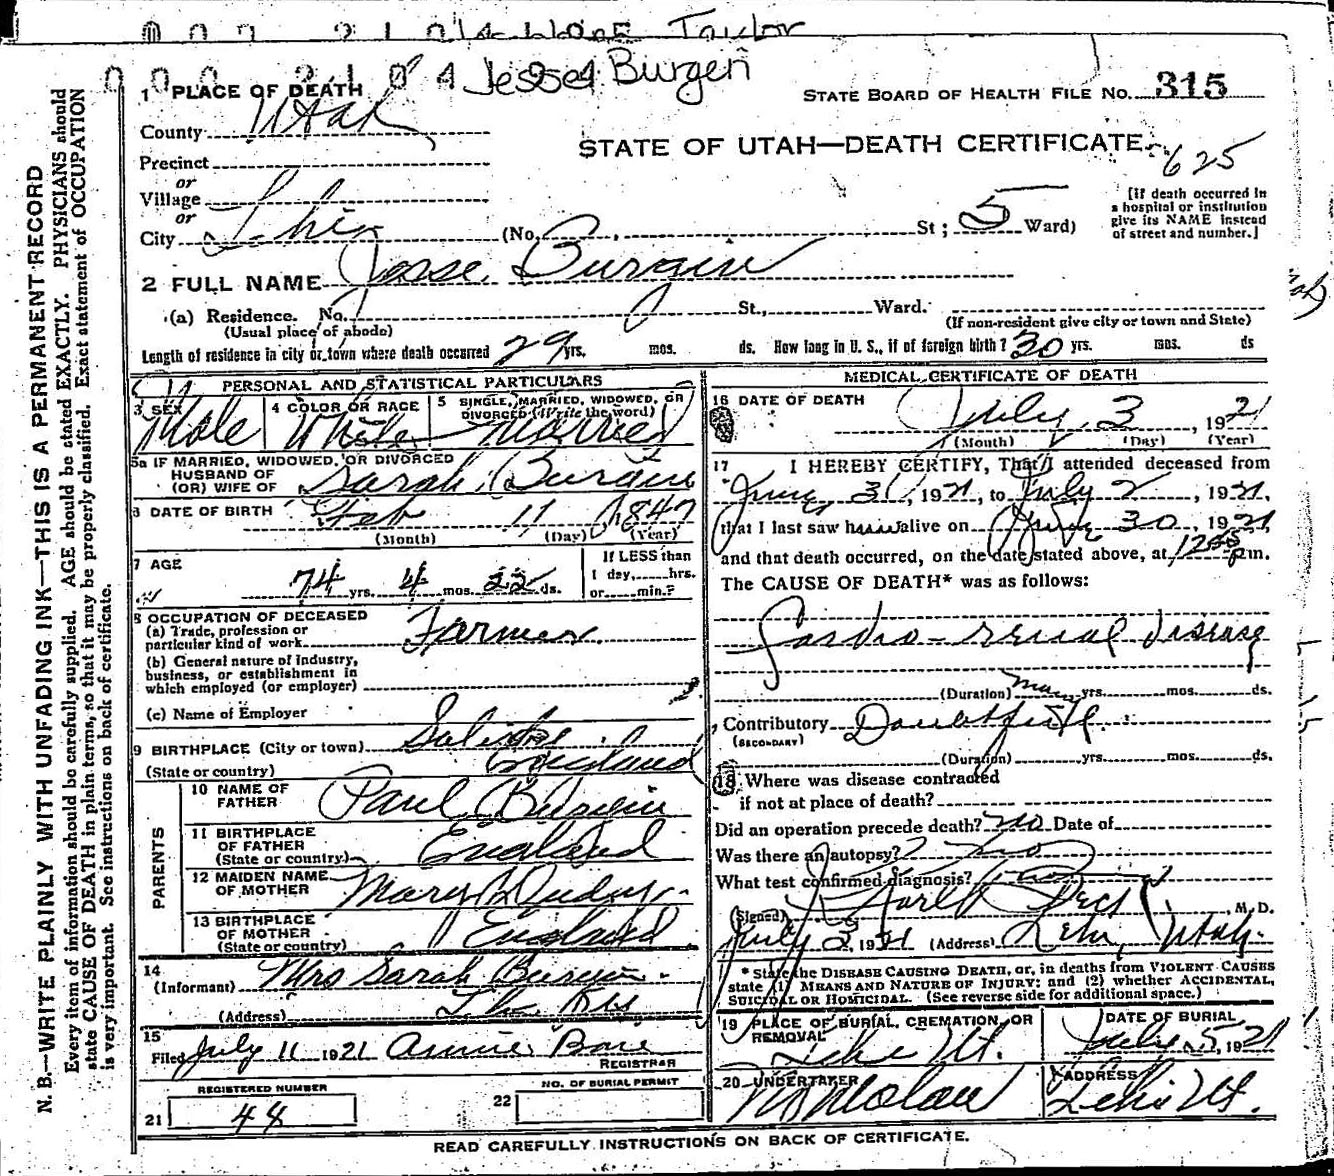 Taylor
Jesse Burgen
1 PLACE OF DEATH
STATE BOARD OF HEALTH FILE NO. 315
County Utah
STATE OF UTAH—DEATH CERTIFICATE
625
Precinct
or
Village
or
City Lehi (No. St; 5 Ward)
[If death occurred in
a hospital or institution
give its NAME instead
of street and number.]
2 FULL NAME Jesse Burgin
(a) Residence. No. St., Ward.
(Usual place of abode) (If non-resident give city or town and State)
Length of residence in city or town where death occurred 29 yrs. mos. ds. How long in U. S., if of foreign birth? 30 yrs. mos. ds
PERSONAL AND STATISTICAL PARTICULARS
3 SEX Male
4 COLOR OR RACE White
5 SINGLE, MARRIED, WIDOWED, OR
DIVORCED (Write the word) Married
5a IF MARRIED, WIDOWED, OR DIVORCED
HUSBAND OF
(OR) WIFE OF Sarah Burgin
6 DATE OF BIRTH Feb 11 1847
(Month) (Day) (Year)
7 AGE 74 yrs. 4 mos. 22 ds.
If LESS than
1 day, hrs.
or min.?
8 OCCUPATION OF DECEASED
(a) Trade, profession or
particular kind of work Farmer
(b) General nature of industry,
business, or establishment in
which employed (or employer)
(c) Name of Employer
9 BIRTHPLACE (City or town)
(State or country) England
PARENTS
10 NAME OF
FATHER Paul Burgin
11 BIRTHPLACE
OF FATHER
(State or country) England
12 MAIDEN NAME
OF MOTHER Mary
13 BIRTHPLACE
OF MOTHER
(State or country) England
14
(Informant) Mrs Sarah Burgin
(Address)
15
Filed July 11 1921 Annie Bone
REGISTRAR
REGISTERED NUMBER
21 44
NO. OF BURIAL PERMIT
22
MEDICAL CERTIFICATE OF DEATH
16 DATE OF DEATH July 3, 1921
(Month) (Day) (Year)
17 I HEREBY CERTIFY, That I attended deceased from
June 3, 1921, to July 2, 1921,
that I last saw him alive on June 30, 1921
and that death occurred, on the date stated above, at p.m.
The CAUSE OF DEATH* was as follows:
Cardio-renal disease
(Duration) many yrs. mos. ds.
Contributory
(SECONDARY)
(Duration) yrs. mos. ds.
18 Where was disease contracted
if not at place of death?
Did an operation precede death? no Date of
Was there an autopsy? no
What test confirmed diagnosis?
(Signed) M. D.
July 3, 1921 (Address) Lehi, Utah.
* State the DISEASE CAUSING DEATH, or, in deaths from VIOLENT CAUSES
state (1) MEANS AND NATURE OF INJURY: and (2) whether ACCIDENTAL,
SUICIDAL OR HOMICIDAL. (See reverse side for additional space.)
19 PLACE OF BURIAL, CREMATION, OR
REMOVAL Lehi Ut.
DATE OF BURIAL
July 5, 1921
20 UNDERTAKER
ADDRESS
Lehi Ut.
READ CAREFULLY INSTRUCTIONS ON BACK OF CERTIFICATE.
N. B.—WRITE PLAINLY WITH UNFADING INK—THIS IS A PERMANENT RECORD
Every item of information should be carefully supplied. AGE should be stated EXACTLY. PHYSICIANS should
state CAUSE OF DEATH in plain terms, so that it may be properly classified. Exact statement of OCCUPATION
is very important. See instructions on back of certificate.